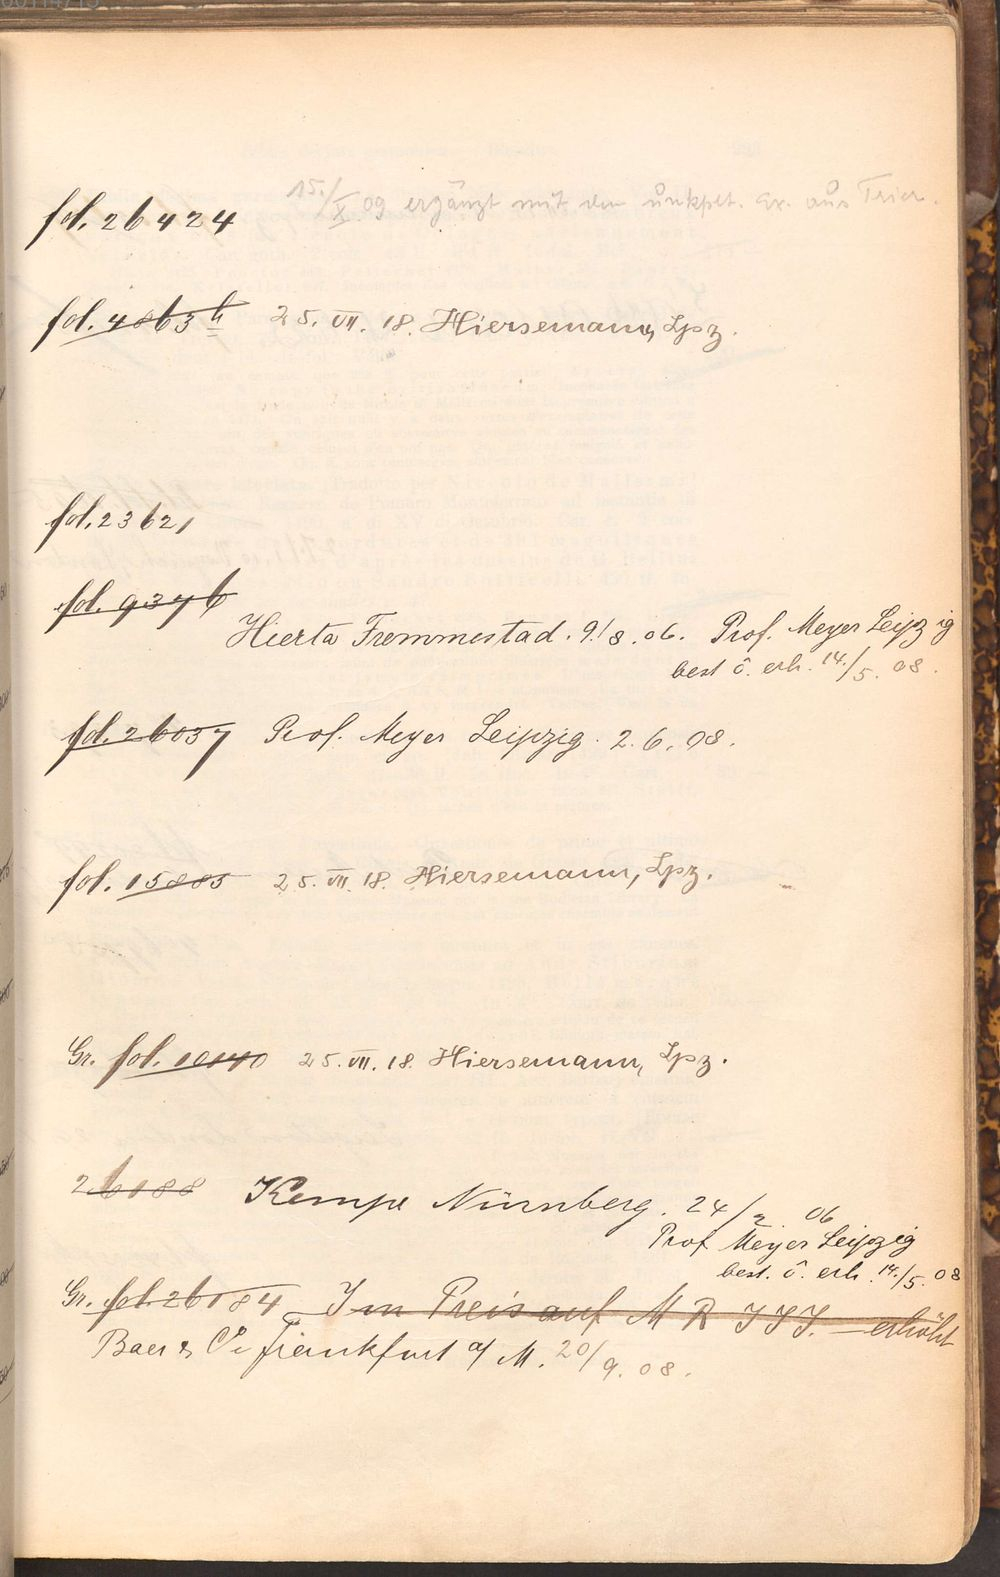 fol. 26424 15./X. 09 ergänzt mit dem unkplt. Ex. aus Trier.
fol. 4863 h 25. VII. 18. Hiersemann, Lpz.
fol. 23621
fol. 9376
Hierta Frommestad. 9./8. 06. Prof. Meyer Leipzig
best u. erh. 14./5. 08.
fol. 26037 Prof. Meyer Leipzig. 2. 6. 08.
fol. 15885 25. VII. 18. Hiersemann, Lpz.
Gr. fol. 10140 25. VII. 18. Hiersemann, Lpz.
26188 Kempe Nürnberg. 24/2. 06
Prof Meyer Leipzig
best. u. erh. 14./5. 08
Gr. fol. 26184 Im Preis auf M R J J J. — erhöht
Baer & Co Frankfurt a/M. 20/9. 08.